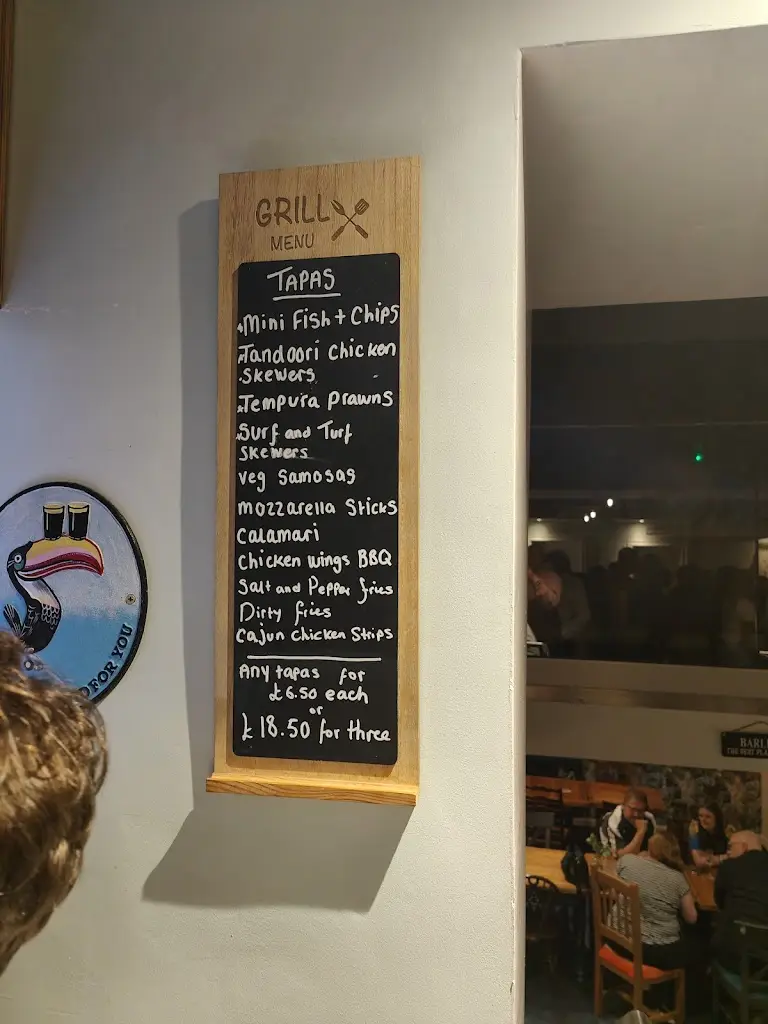 GRILL
MENU
TAPAS
Mini Fish + Chips
Tandoori Chicken
Skewers
Tempura Prawns
Surf and Turf
Skewers
Veg Samosas
Mozzarella Sticks
Calamari
Chicken wings BBQ
Salt and Pepper fries
Dirty fries
Cajun Chicken Strips
Any tapas for
£6.50 each
or
£18.50 for three
FOR YOU